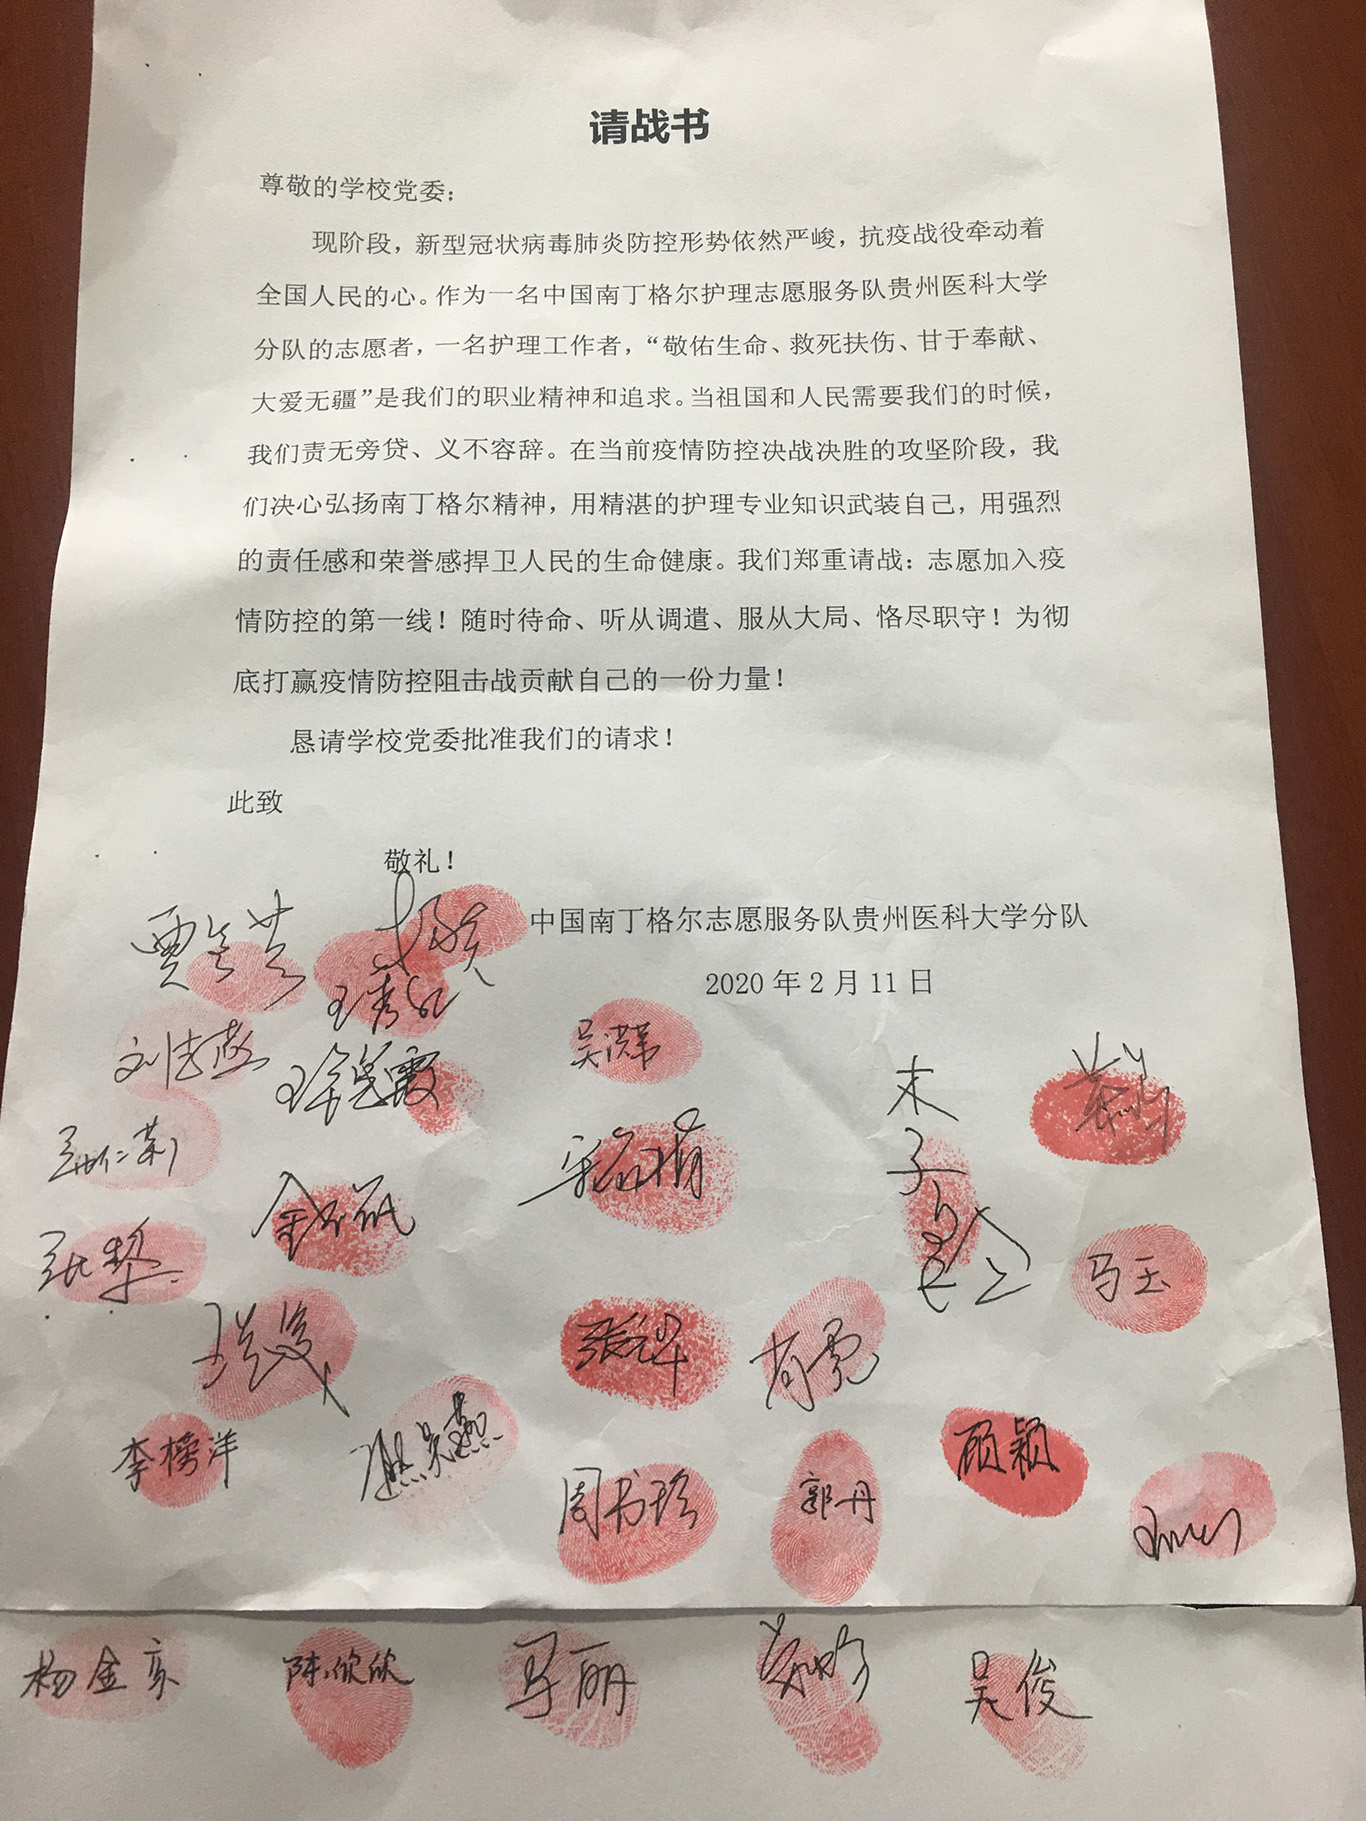 请战书
尊敬的学校党委：
现阶段，新型冠状病毒肺炎防控形势依然严峻，抗疫战役牵动着
全国人民的心。作为一名中国南丁格尔护理志愿服务队贵州医科大学
分队的志愿者，一名护理工作者，“敬佑生命、救死扶伤、甘于奉献、
大爱无疆”是我们的职业精神和追求。当祖国和人民需要我们的时候，
我们责无旁贷、义不容辞。在当前疫情防控决战决胜的攻坚阶段，我
们决心弘扬南丁格尔精神，用精湛的护理专业知识武装自己，用强烈
的责任感和荣誉感捍卫人民的生命健康。我们郑重请战：志愿加入疫
情防控的第一线！随时待命、听从调遣、服从大局、恪尽职守！为彻
底打赢疫情防控阻击战贡献自己的一份力量！
恳请学校党委批准我们的请求！
此致
敬礼！
中国南丁格尔志愿服务队贵州医科大学分队
2020年2月11日
马玉
李榜洋
周书珍
郭丹
顾颖
杨金亥
陈欣欣
马丽
吴俊